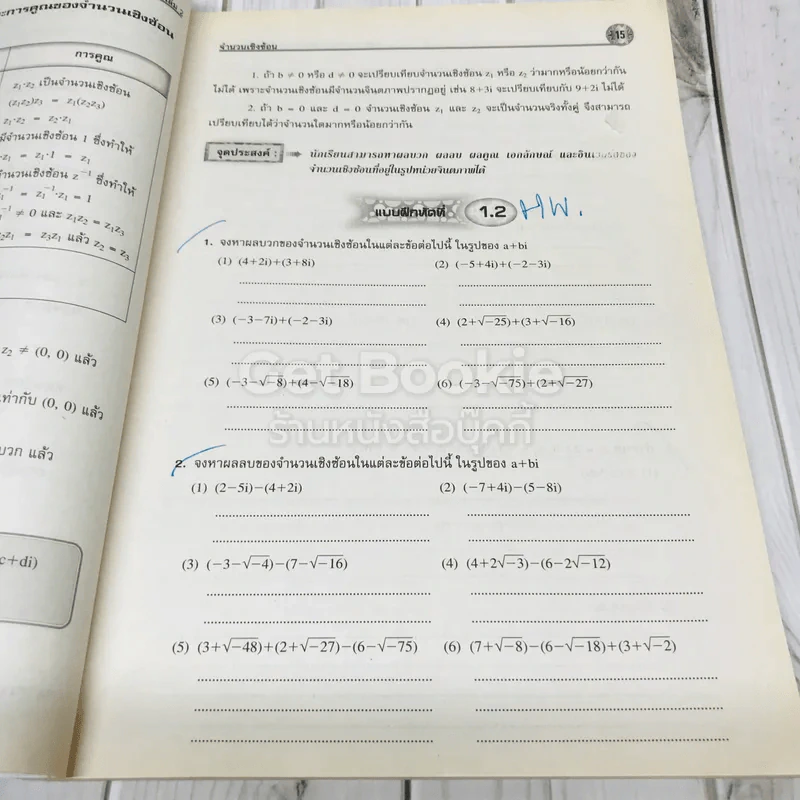 ะการคูณของจำนวนเชิงซ้อน
การคูณ
z₁·z₂ เป็นจำนวนเชิงซ้อน
(z₁z₂)z₃ = z₁(z₂z₃)
z₁·z₂ = z₂·z₁
มีจำนวนเชิงซ้อน 1 ซึ่งทำให้
·z₁ = z₁·1 = z₁
านวนเชิงซ้อน z⁻¹ ซึ่งทำให้
= z₁⁻¹·z₁ = 1
≠ 0 และ z₁z₂ = z₁z₃
z₂z₁ = z₃z₁ แล้ว z₂ = z₃
z₂ ≠ (0, 0) แล้ว
เท่ากับ (0, 0) แล้ว
บวก แล้ว
c+di)
จำนวนเชิงซ้อน
15
1. ถ้า b ≠ 0 หรือ d ≠ 0 จะเปรียบเทียบจำนวนเชิงซ้อน z₁ หรือ z₂ ว่ามากหรือน้อยกว่ากัน
ไม่ได้ เพราะจำนวนเชิงซ้อนมีจำนวนจินตภาพปรากฏอยู่ เช่น 8+3i จะเปรียบเทียบกับ 9+2i ไม่ได้
2. ถ้า b = 0 และ d = 0 จำนวนเชิงซ้อน z₁ และ z₂ จะเป็นจำนวนจริงทั้งคู่ จึงสามารถ
เปรียบเทียบได้ว่าจำนวนใดมากหรือน้อยกว่ากัน
จุดประสงค์ : นักเรียนสามารถหาผลบวก ผลลบ ผลคูณ เอกลักษณ์ และอินเวอร์สของ
จำนวนเชิงซ้อนที่อยู่ในรูปหน่วยจินตภาพได้
แบบฝึกหัดที่ 1.2 HW.
1. จงหาผลบวกของจำนวนเชิงซ้อนในแต่ละข้อต่อไปนี้ ในรูปของ a+bi
(1) (4+2i)+(3+8i) (2) (−5+4i)+(−2−3i)
(3) (−3−7i)+(−2−3i) (4) (2+√−25)+(3+√−16)
Get Bookie
(5) (−3−√−8)+(4−√−18) (6) (−3−√−75)+(2+√−27)
ร้านหนังสือบุ๊คกี้
2. จงหาผลลบของจำนวนเชิงซ้อนในแต่ละข้อต่อไปนี้ ในรูปของ a+bi
(1) (2−5i)−(4+2i) (2) (−7+4i)−(5−8i)
(3) (−3−√−4)−(7−√−16) (4) (4+2√−3)−(6−2√−12)
(5) (3+√−48)+(2+√−27)−(6−√−75) (6) (7+√−8)−(6−√−18)+(3+√−2)